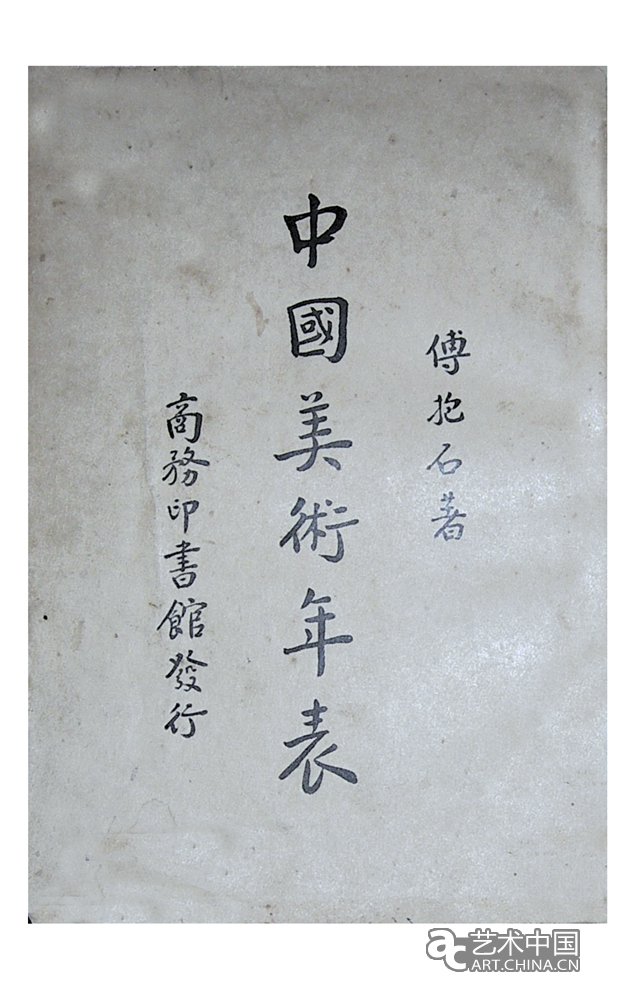 傅抱石著
中國美術年表
商務印書館發行
艺术中国
ART.CHINA.CN